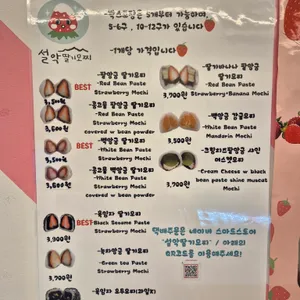 -박스포장은 5개부터 가능하며,
5-6구, 10-12구가 있습니다
-1개당 가격입니다
설악딸기모찌
-팥앙금 딸기모찌
-Red Bean Paste
Strawberry Mochi
BEST
3,500원
-콩고물 팥앙금 딸기모찌
-Red Bean Paste
Strawberry Mochi
covered w bean powder
3,500원
-백앙금 딸기모찌
-White Bean Paste
Strawberry Mochi
BEST
3,500원
-콩고물 백앙금 딸기모찌
-White Bean Paste
Strawberry Mochi
covered w bean powder
3,500원
-흑임자 딸기모찌
-Black Sesame Paste
Strawberry Mochi
BEST
3,900원
-녹차앙금 딸기모찌
-Green tea Paste
Strawberry Mochi
3,900원
-팥앙금 딸기바나나 찰모찌
-Red Bean Paste
Strawberry+Banana Mochi
3,900원
-백앙금 감귤모찌
-White Bean Paste
Mandarin Mochi
3,500원
-크림치즈팥앙금 샤인
머스켓모찌
-Cream Cheese w black
bean paste shine muscat
Mochi
3,900원
택배주문은 네이버 스마트스토어
'설악딸기모찌' / 아래의
QR코드를 이용해주세요!